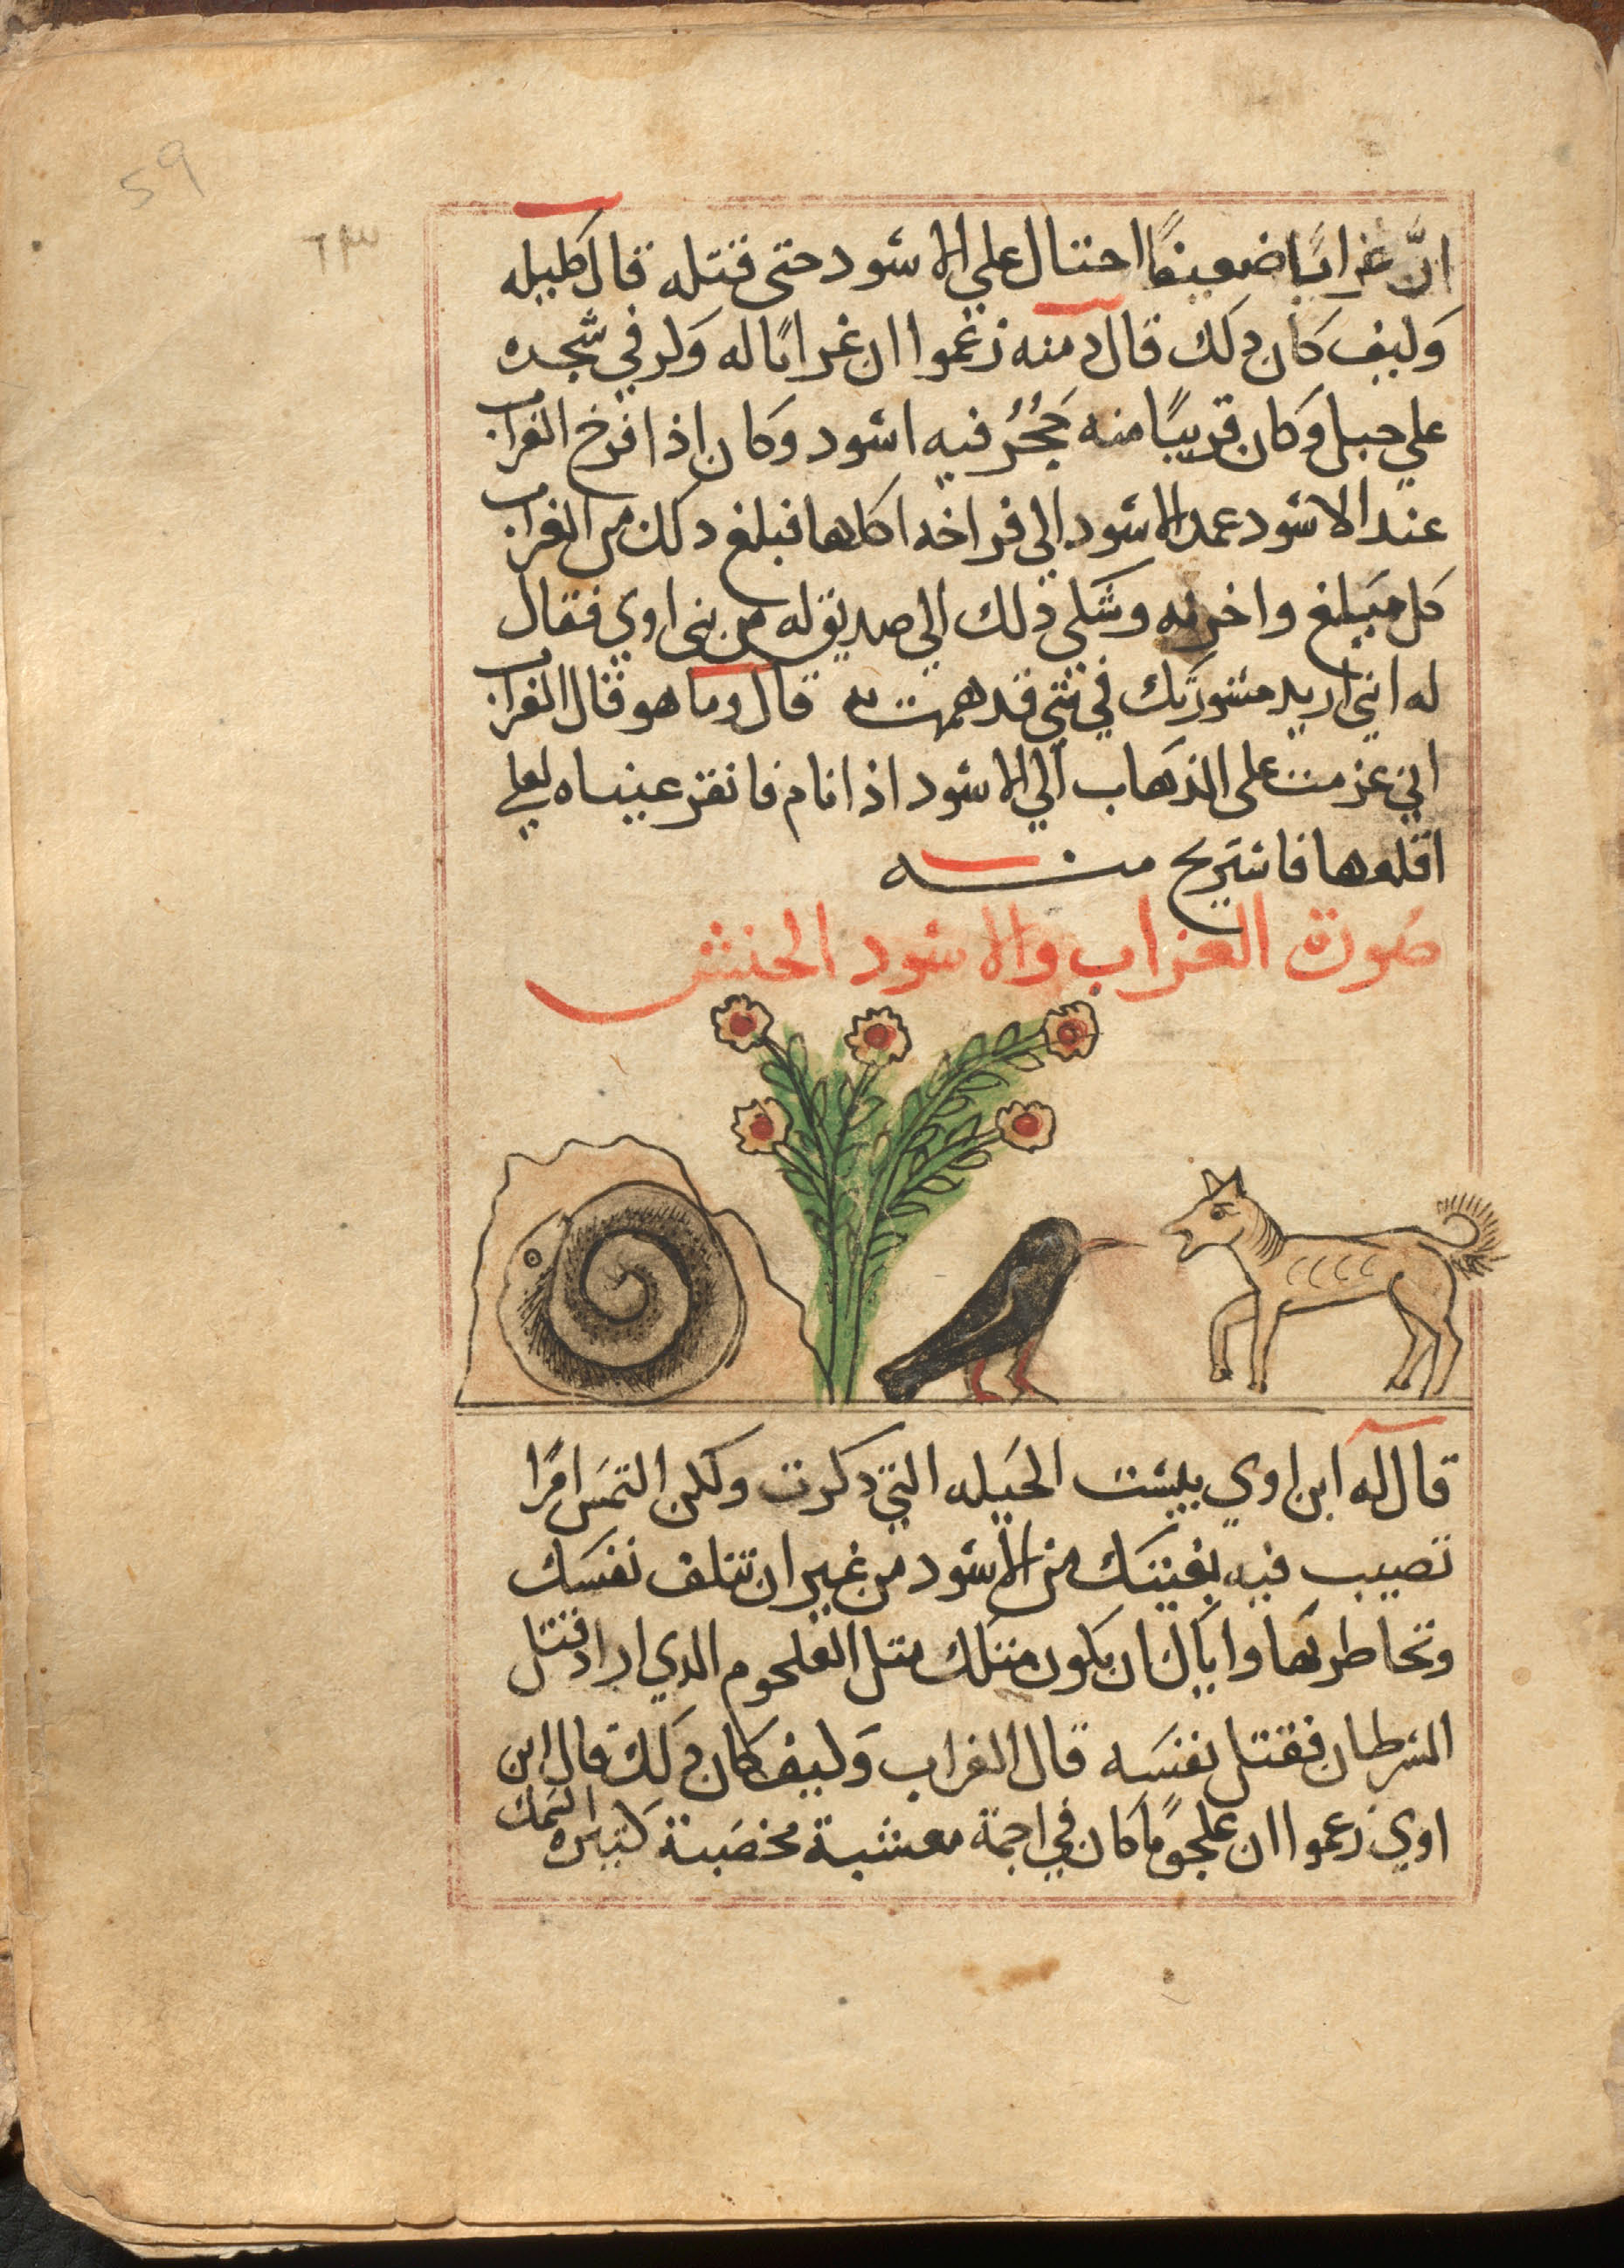 59
٦٣
انَّ غرابًا ضعيفًا احتال علي الاسود حتى قتله قال كليله
وَكيف كان ذلك قال دمنه زعموا ان غرابًا له وَكر في شجره
علي جبل وَكان قريبًا منه جُحْرُ فيه اسود وكان اذا افرخ الغراب
عند الاسود عمد الاسود الي فراخه اكلها فبلغ ذلك من الغراب
كل مبلغ واحزنه وشكي ذلك الي صديق له من بني اوي فقال
له انني اريد مشورتك في شي قد هممت به قال وما هو قال الغراب
اني عزمت على الذهاب الي الاسود اذا نام فانقز عيناه لعلي
اقلعها فاستريح منه
صورة الغراب والاسود الحنش
قال له ابن اوي بيست الحيله التي ذكرت ولكن التمس امرًا
تصيب فيه بغيتك من الاسود من غير ان تتلف نفسك
وتخاطر بها واياك ان يكون مثلك مثل العلجوم الذي اراد قتل
السرطان فقتل نفسه قال الغراب وَكيف كان ذلك قال ابن
اوي زعموا ان علجومًا كان في اجمة معشبة مخصبة كثيره السمك